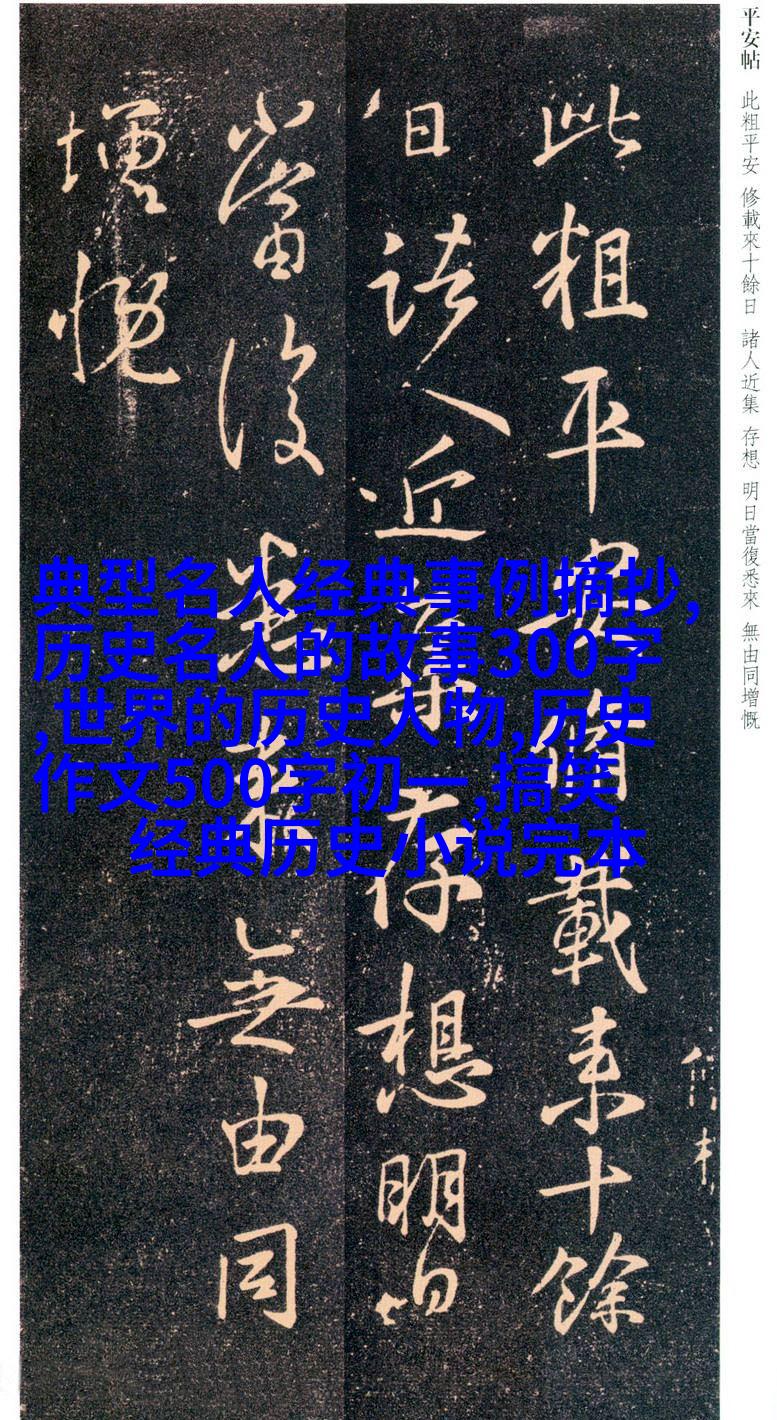 平安帖 此粗平安 修載來十餘日 諸人近集 存想 明日當復悉來 無由同增慨
此粗平安脩載来十餘
日諸人近集存想明日
當復悉来無由同
增慨
典型名人经典事例摘抄,
历史名人的故事300字
,世界的历史人物,历史
作文500字初一,搞笑
经典历史小说完本